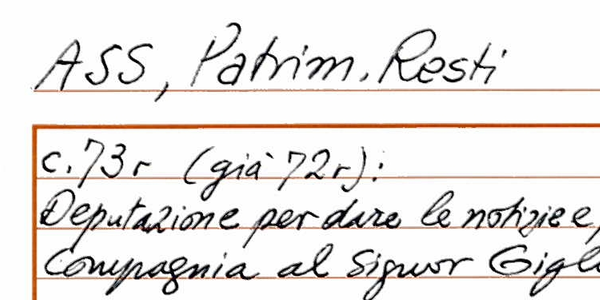 ASS, Patrim. Resti
c. 73r (già 72r):
Deputazione per dare le notizie e,
Compagnia al Signor Gigl